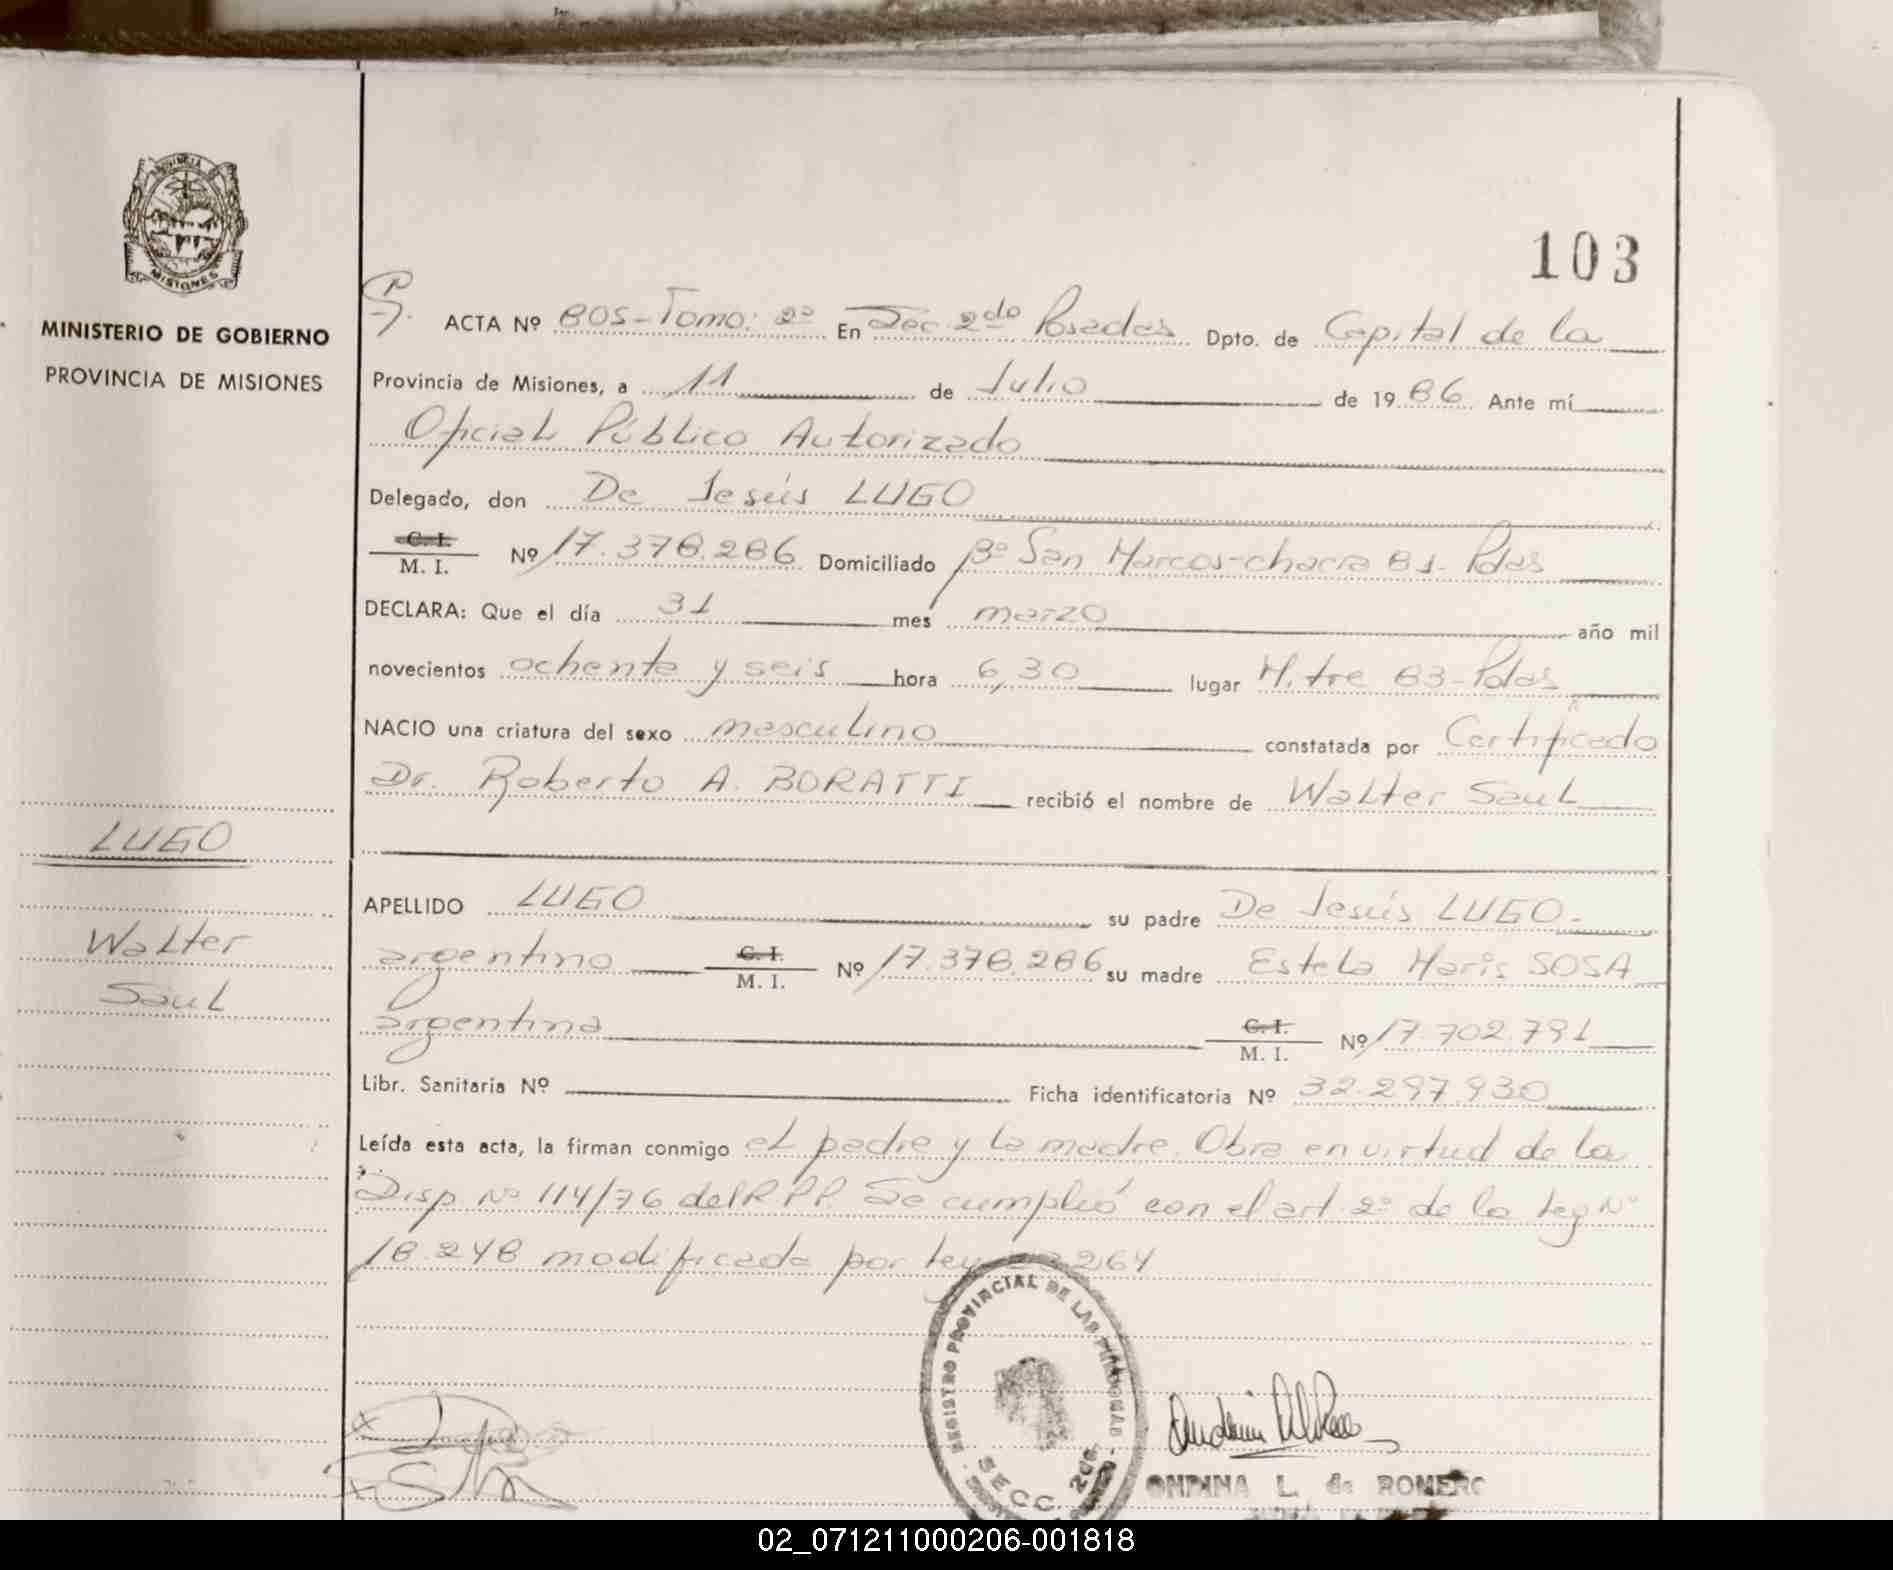 PROVINCIA
MISIONES
MINISTERIO DE GOBIERNO
PROVINCIA DE MISIONES
LUGO
Walter
Saul
103
ACTA Nº 805-Tomo: 2º En Sec. 2do Posadas Dpto. de Capital de la
Provincia de Misiones, a 11 de Julio de 1986. Ante mí
Oficial Público Autorizado
Delegado, don De Jesús LUGO
C. I.
M. I. Nº 17.378.286 Domiciliado Bº San Marcos-chacra 81- Pdas
DECLARA: Que el día 31 mes marzo año mil
novecientos ochenta y seis hora 6,30 lugar Mitre 83-Pdas
NACIO una criatura del sexo masculino constatada por Certificado
Dr. Roberto A. BORATTI recibió el nombre de Walter Saul
APELLIDO LUGO su padre De Jesús LUGO.-
argentino C. I. M. I. Nº 17.378.286 su madre Estela Maris SOSA
argentina C. I. M. I. Nº 17.702.791
Libr. Sanitaria Nº Ficha identificatoria Nº 32.297.930
Leída esta acta, la firman conmigo el padre y la madre. Obra en virtud de la
Disp. Nº 114/76 del R.P.P. Se cumplió con el art. 2º de la Ley Nº
18.248 modificada por ley 264
REGISTRO PROVINCIAL DE LAS PERSONAS
SECC. 2da.
L. de ROMERO
02_071211000206-001818